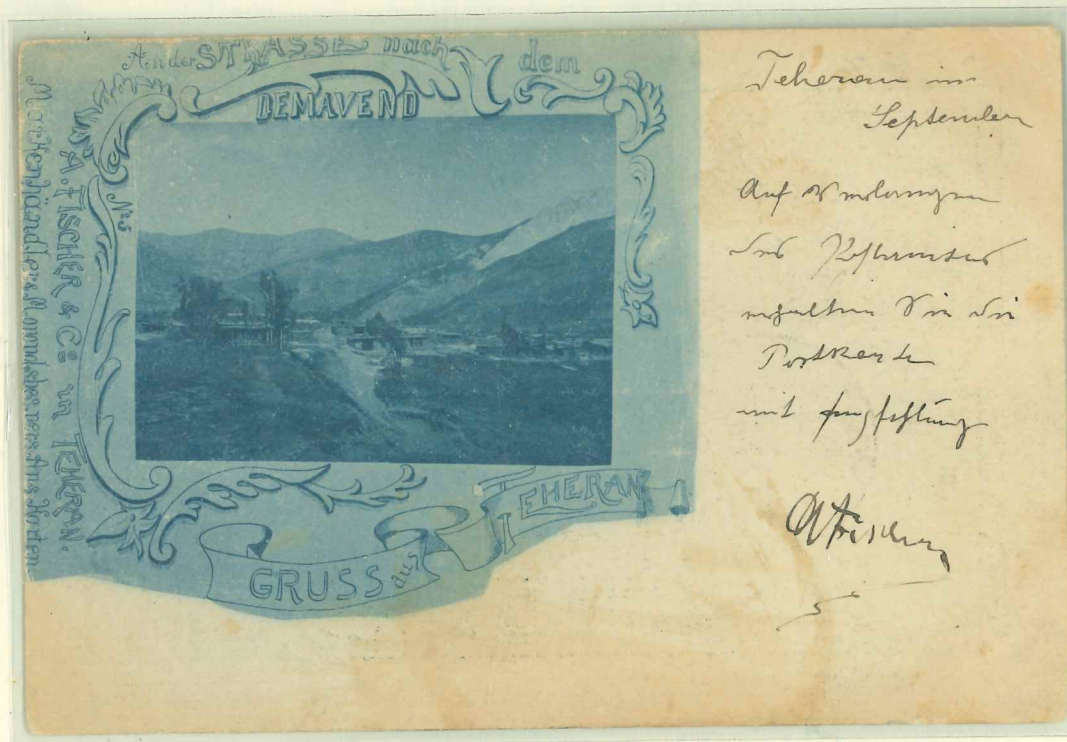 An der STRASSE nach dem
DEMAVEND
No. 5
A. FISCHER & Co. in TEHERAN.
Markenhändler &
GRUSS aus TEHERAN
Teheran im
September
Auf Verlangen
des
erhalten Sie die
Postkarte
mit Empfehlung
AFischer